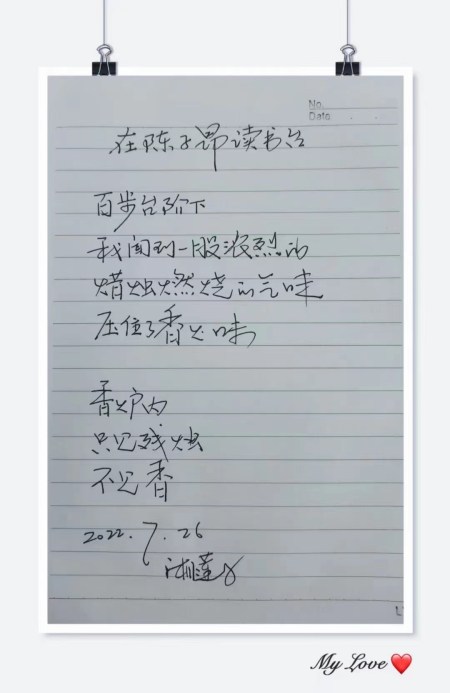 No.
Date
在陈子昂读书台
百步台阶下
我闻到一股浓烈的
蜡烛燃烧的气味
压住了香火味
香炉内
只见残烛
不见香
2022.7.26
My Love